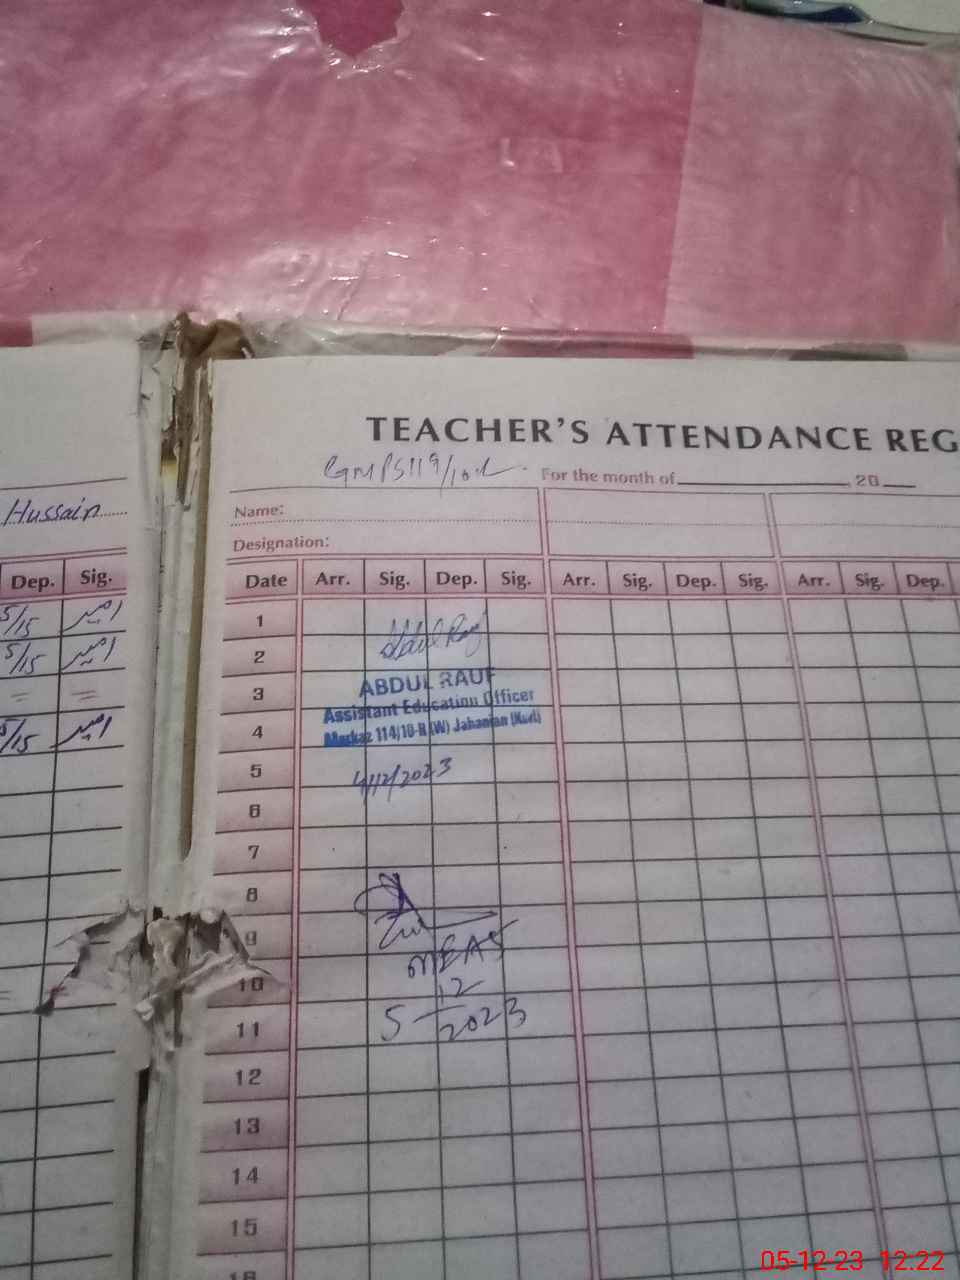 TEACHER'S ATTENDANCE REG
GMPS 119/10-R
For the month of , 20
Hussain
Name:
Designation:
Dep. Sig.
Date Arr. Sig. Dep. Sig. Arr. Sig. Dep. Sig. Arr. Sig. Dep.
5/15 امیر
5/15 امیر
= =
5/15 امیر
1
2
Abdul Rauf
3
ABDUL RAUF
Assistant Education Officer
4
Markaz 114/10-R (W) Jahanian (Kwl)
5
4/12/2023
6
7
8
9
MEAS
10
12
5
2023
11
12
13
14
15
16
05-12-23 12:22